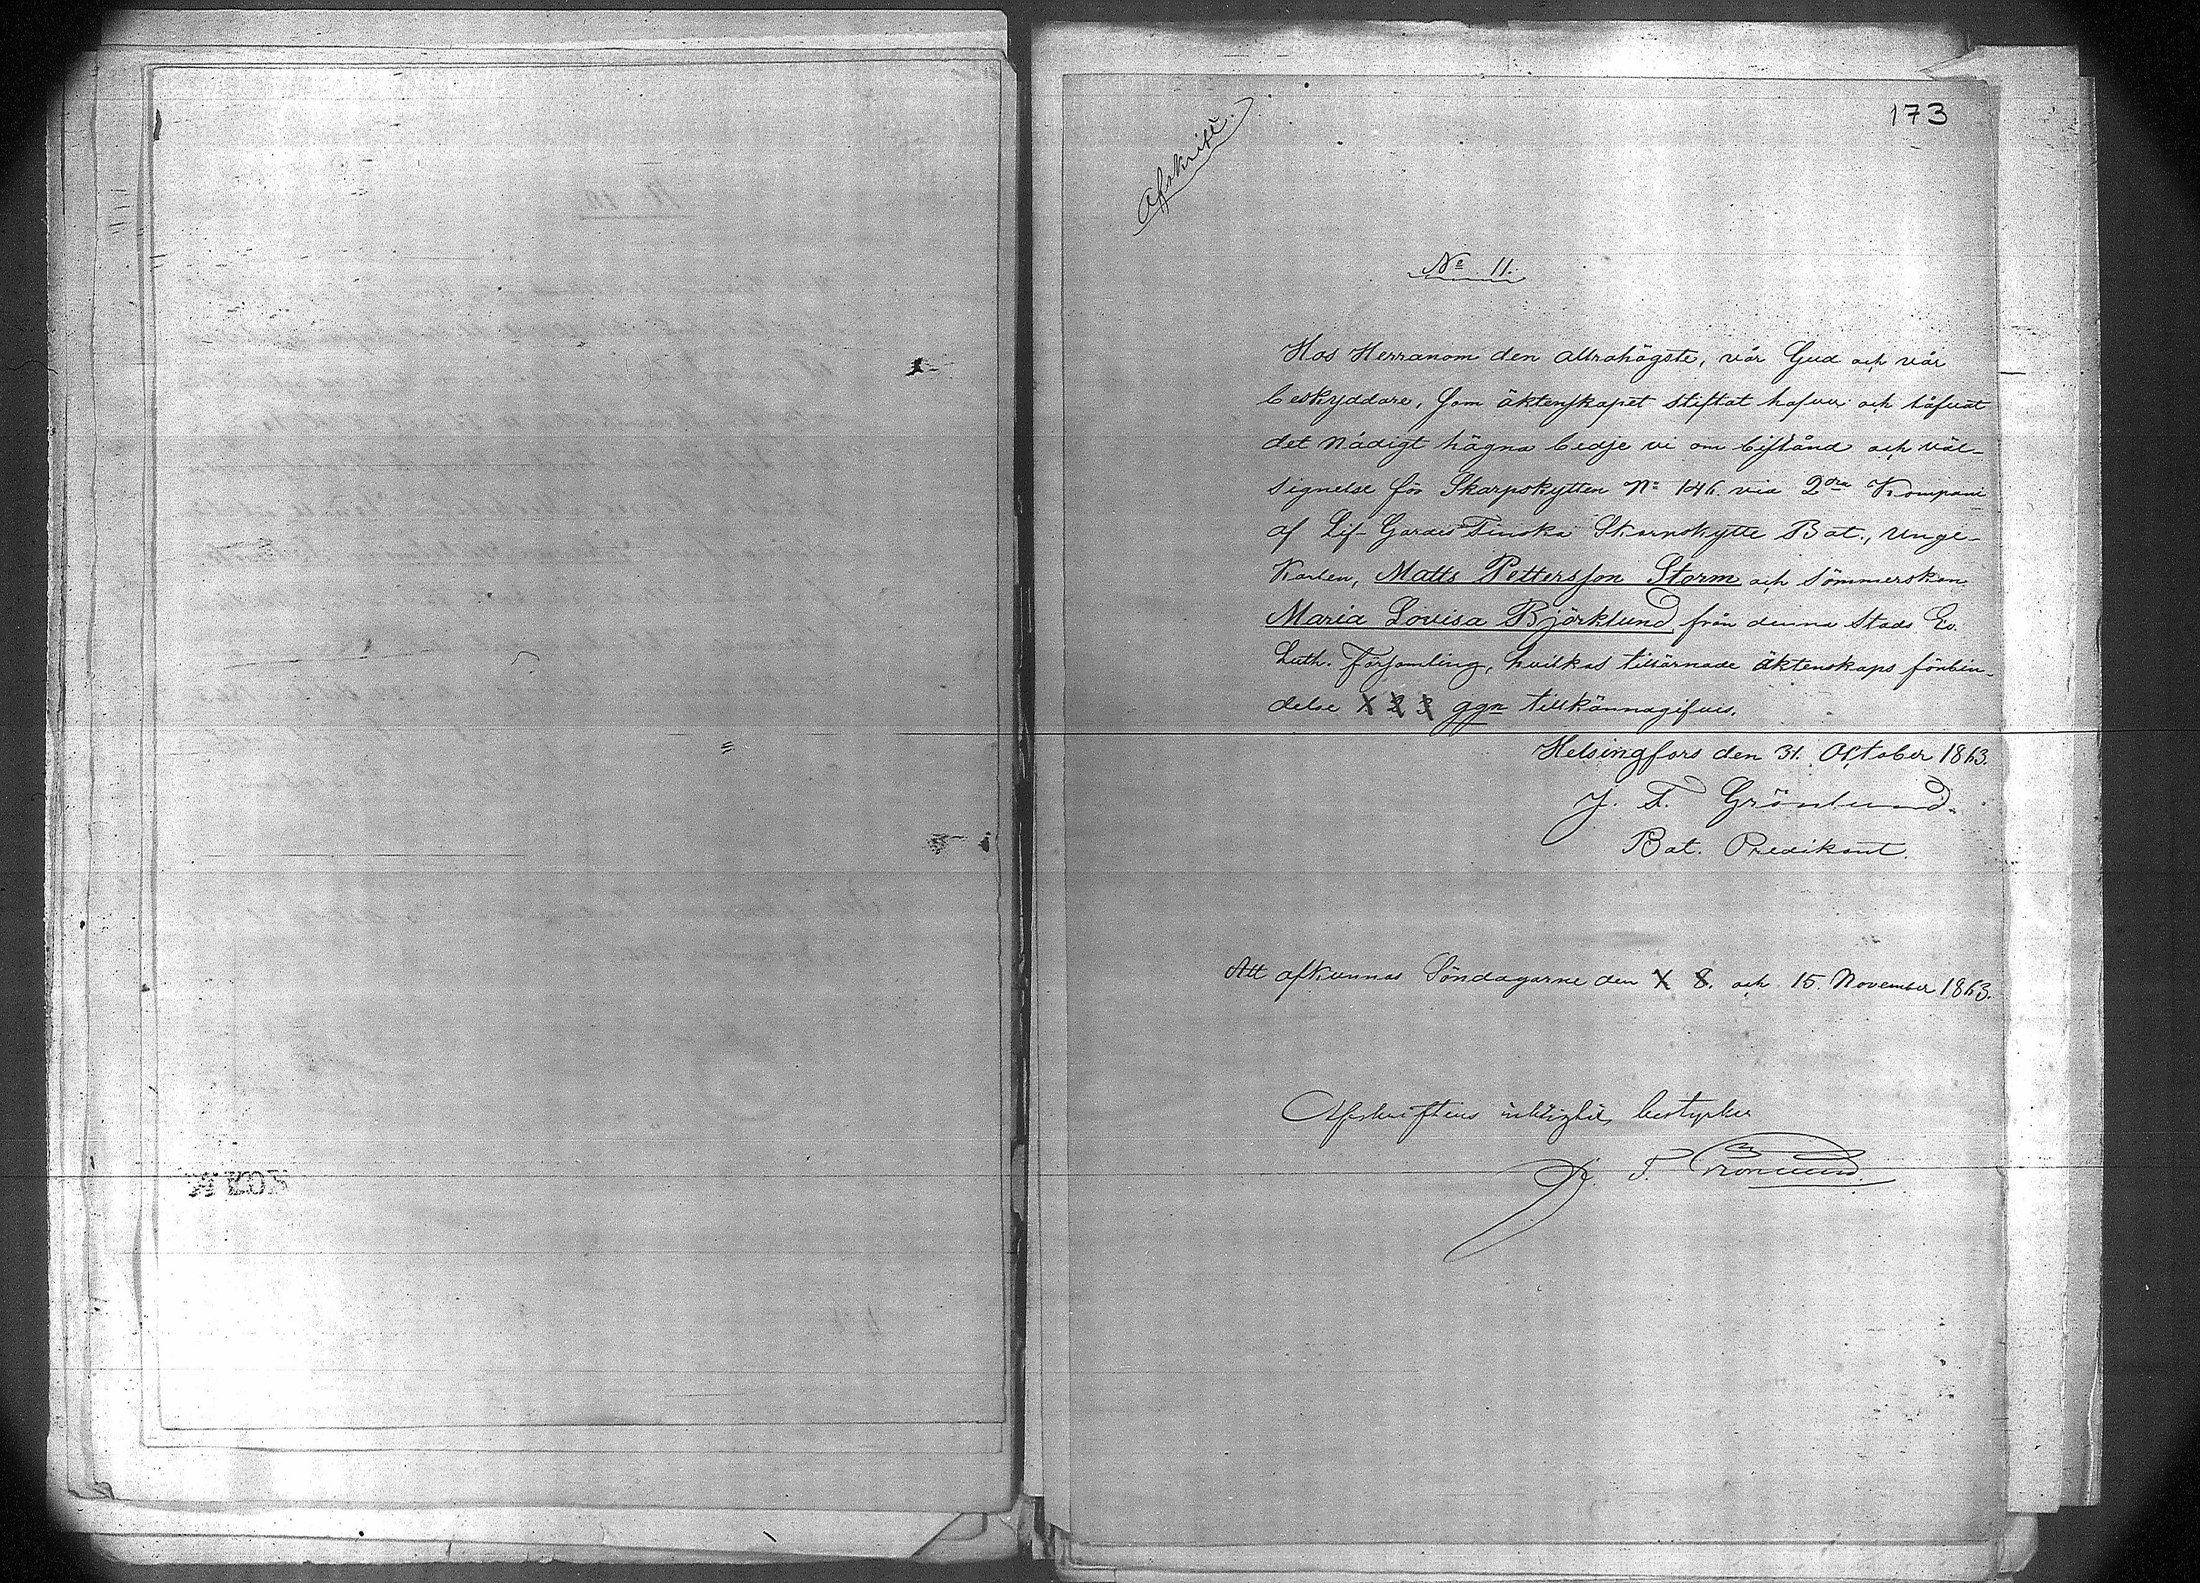 173
Afskrift.
No 11.
Hos Herranom den allrahögste, vår Gud och vår
beskyddare, som äktenskapet stiftat hafver och låfvat
det nådigt hägna bedje vi om bistånd och väl-
signelse för Skarpskytten No 146. vid 2dra Kompani
af Lif-Gardes Finska Skarpskytte Bat., Unge-
Karlen, Matts Pettersson Storm och Sömmerskan
Maria Lovisa Björklund från denna Stads Ev.
Luth. Församling, hvilkas tillärnade äktenskaps förbin-
delse 1 2 3 ggn tillkännagifves.
Helsingfors den 31. October 1863.
J. F. Grönlund.
Bat. Predikant.
Att afkunnas Söndagarne den 8. och 15. November 1863.
Afskriftens bestyrker
J. F. Grönlund.